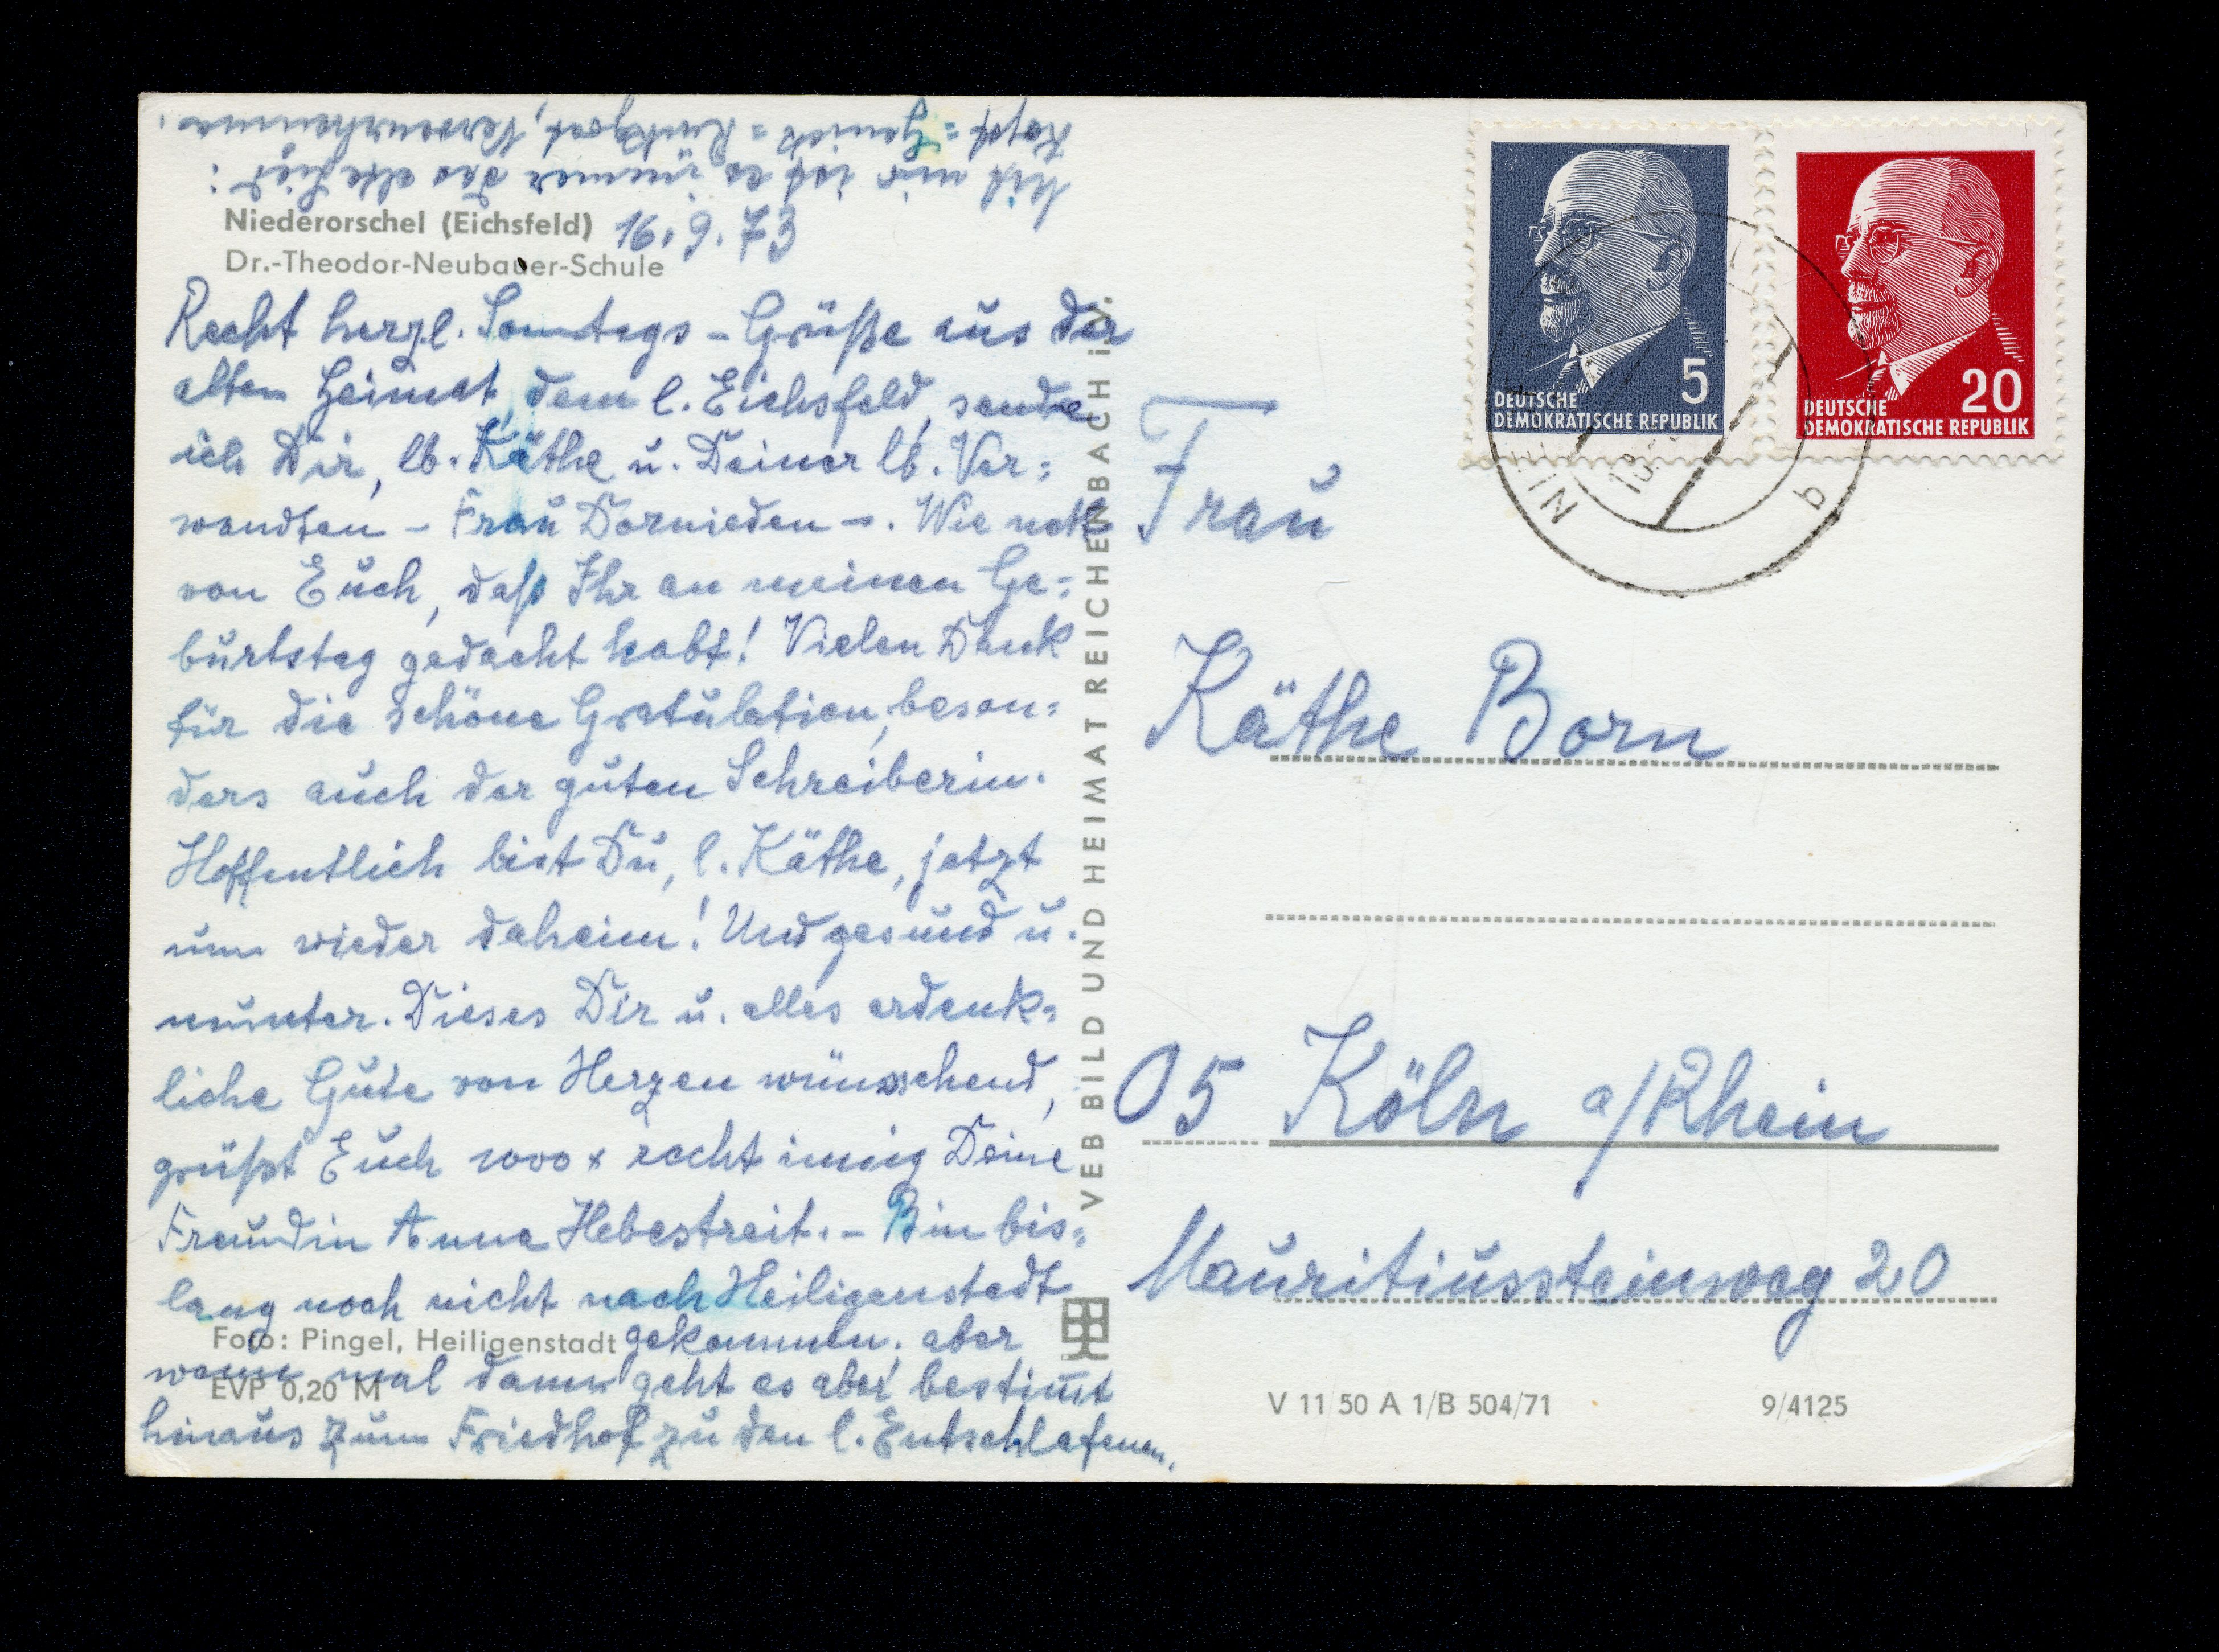 Niederorschel (Eichsfeld) 16.9.73
Dr.-Theodor-Neubauer-Schule
Recht herzl. Sonntags-Grüße aus der
alten Heimat, dem l. Eichsfeld, sende
ich Dir, lb. Käthe u. Deiner lb. Ver=
wandten - Frau Dornieden -. Wie nett
von Euch, daß Ihr an meinen Ge=
burtstag gedacht habt! Vielen Dank
für die schöne Gratulation, beson=
ders auch der guten Schreiberin.
Hoffentlich bist Du, l. Käthe, jetzt
nun wieder daheim! Und gesund u.
munter. Dieses Dir u. alles erdenk=
liche Gute von Herzen wünschend,
grüßt Euch 1000 x recht innig Deine
Freundin Anne Hebestreit. - Bin bis=
lang noch nicht nach Heiligenstadt
Foto: Pingel, Heiligenstadt gekommen. aber
wenn mal dann geht es aber bestimt
EVP 0,20 M
hinaus zum Friedhof zu den l. Entschlafenen.
Mit mir ist es immer das alte Lied:
Kopf = Genick = Rückgrat,
VEB BILD UND HEIMAT REICHENBACH i. V.
DEUTSCHE
DEMOKRATISCHE REPUBLIK
5
DEUTSCHE
DEMOKRATISCHE REPUBLIK
20
Frau
Käthe Born
05 Köln a/Rhein
Mauritiussteinweg 20
V 11 50 A 1/B 504/71
9/4125